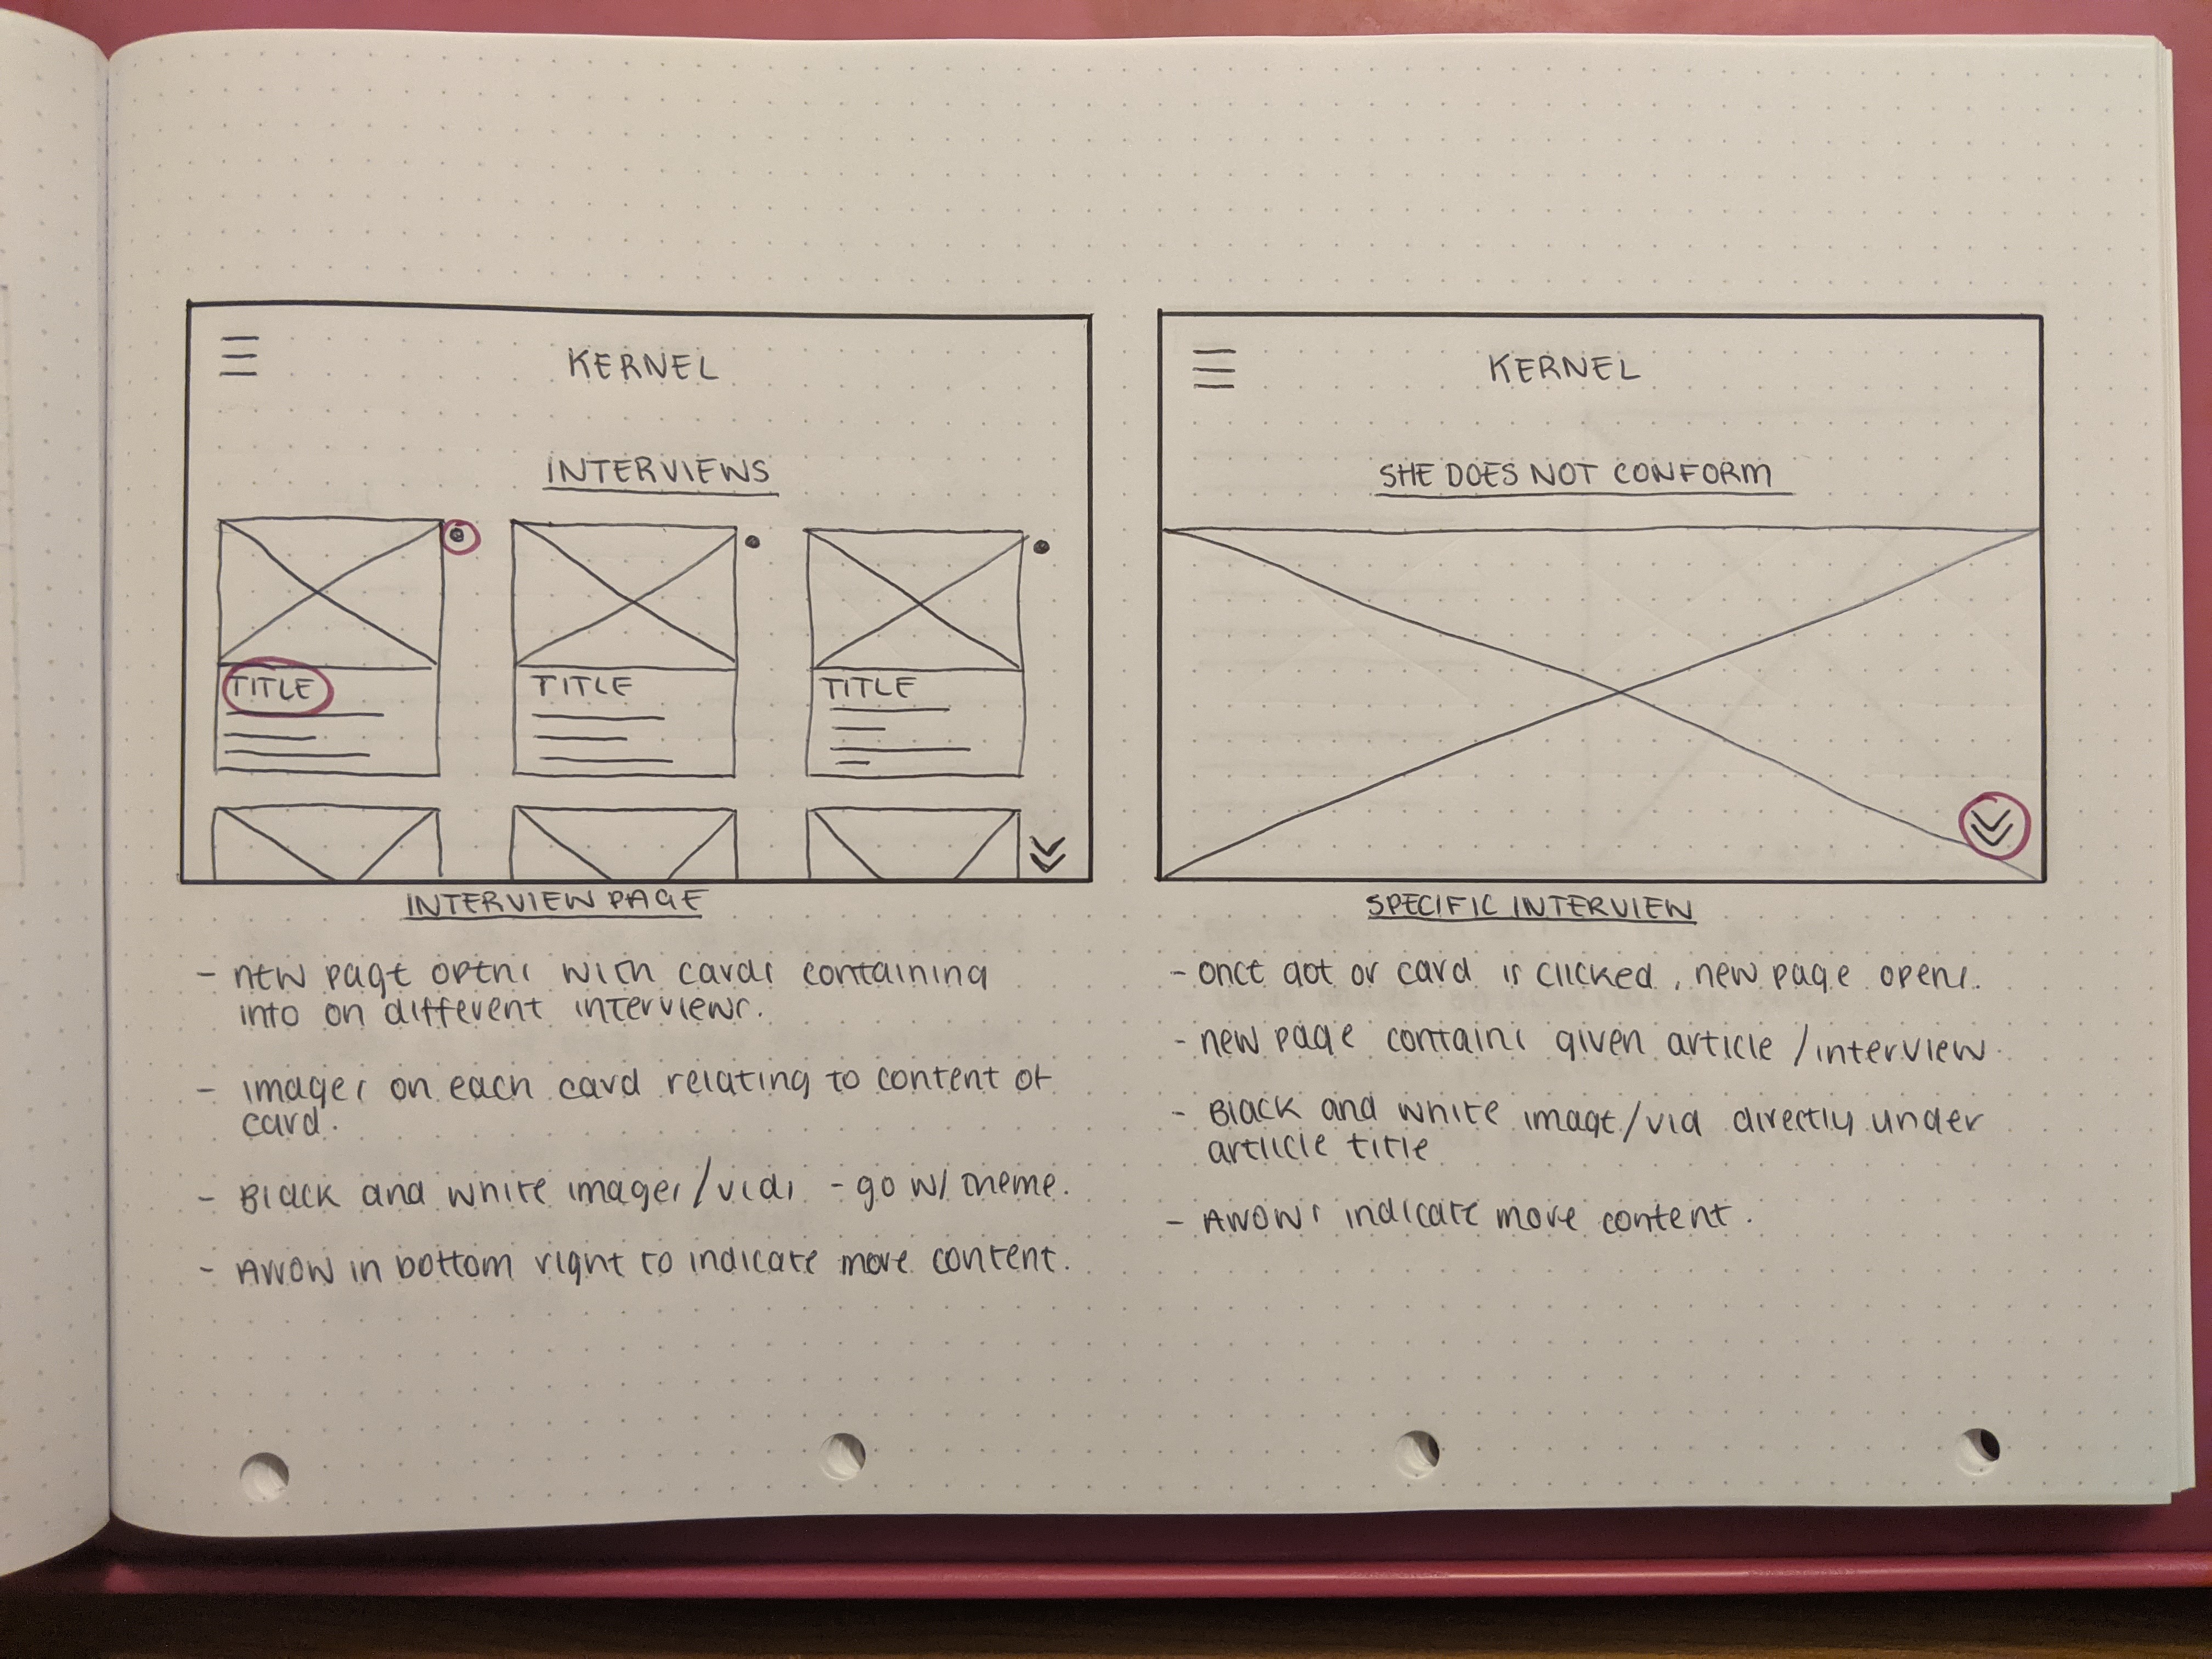 KERNEL
INTERVIEWS
TITLE
TITLE
TITLE
INTERVIEW PAGE
- new page opens with cards containing
info on different interviews.
- images on each card relating to content of
card.
- Black and white images/vids - go w/ theme.
- Arrow in bottom right to indicate more content.
KERNEL
SHE DOES NOT CONFORM
SPECIFIC INTERVIEW
- once dot or card is clicked, new page opens.
- new page contains given article/interview.
- Black and white image/vid directly under
articlle title
- Arrows indicate more content.